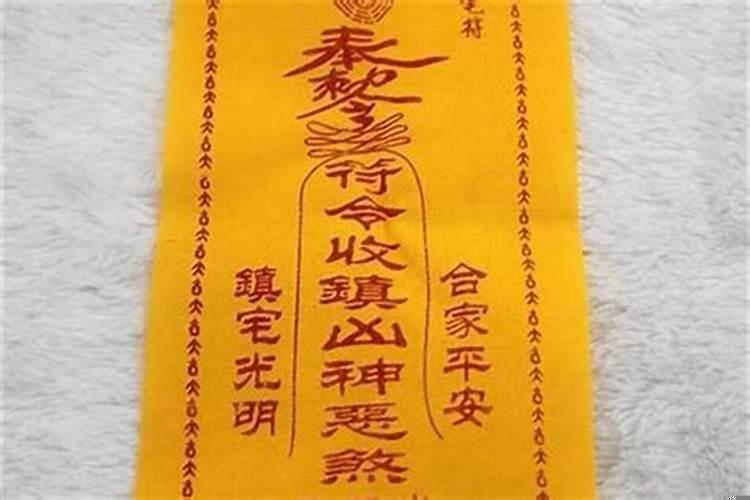 符
奉
勅令
符令收鎮凶神惡煞
合家平安
鎮宅光明